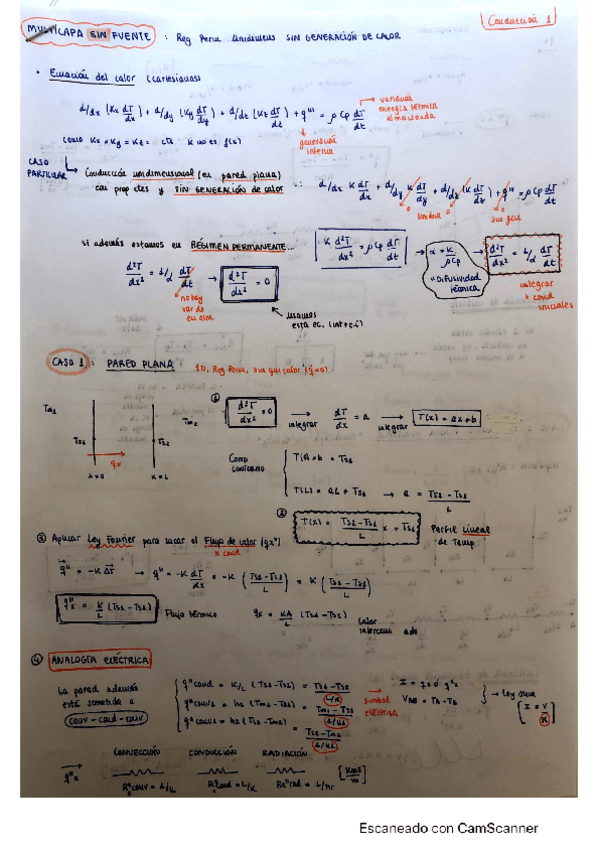 Conducción 1
MULTICAPA SIN FUENTE : Reg Perm Unidimens SIN GENERACIÓN DE CALOR
• Ecuación del calor (cartesianas)
d/dx (Kx dT/dx) + d/dy (Ky dT/dy) + d/dz (Kz dT/dz) + q''' = ρ Cp dT/dt → variación energía térmica almacenada
↓ generación interna
como Kx = Ky = Kz = cte K no es f(x)
CASO PARTICULAR → Conducción unidimensional (en pared plana)
con prop ctes y SIN GENERACIÓN de calor ∴ d/dx K dT/dx + d/dy K dT/dy + d/dz (K dT/dz) + q''' = ρ Cp dT/dt
sin gen
Si además estamos en RÉGIMEN PERMANENTE...
K d²T/dx² = ρ Cp dT/dt → α = K/ρCp → d²T/dx² = 1/α dT/dt
"Difusividad térmica
integrar + cond iniciales
d²T/dx² = 1/α dT/dt → d²T/dx² = 0
no hay var de
usamos esta ec.
CASO 1 : PARED PLANA : 1D, Reg Perm, sin gen calor (q̇=0)
① d²T/dx² = 0 → integrar dT/dx = a → integrar T(x) = ax + b
T∞1 Ts1 Ts2 T∞2
qx
x=0 x=L
COND CONTORNO
T(0) = b = Ts1
T(L) = aL + Ts1 → a = Ts2 - Ts1 / L
② T(x) = Ts2 - Ts1 / L x + Ts1 Perfil Lineal de Temp
③ Aplicar Ley Fourier para sacar el Flujo de calor (qx") x cond
q" = -K ΔT → q" = -K dT/dx = -K (Ts2 - Ts1 / L) = K (Ts1 - Ts2 / L)
q"x = K/L (Ts1 - Ts2) Flujo térmico qx = KA/L (Ts1 - Ts2) Calor intercambiado
④ ANALOGÍA ELÉCTRICA
La pared además está sometida a conv - cond - conv
q" cond = K/L (Ts1 - Ts2) = Ts1 - Ts2 / L/K
q" conv1 = h1 (T∞1 - Ts1) = T∞1 - Ts1 / 1/h1
q" conv2 = h2 (Ts2 - T∞2) = Ts2 - T∞2 / 1/h2
→ símbolo eléctrica
I = qx ó q"x
VAB = TA - TB
→ Ley Ohm [I = V/R]
CONVECCIÓN CONDUCCIÓN RADIACIÓN
q"x
R"conv = 1/h R"cond = L/K R"rad = 1/hr
Escaneado con CamScanner